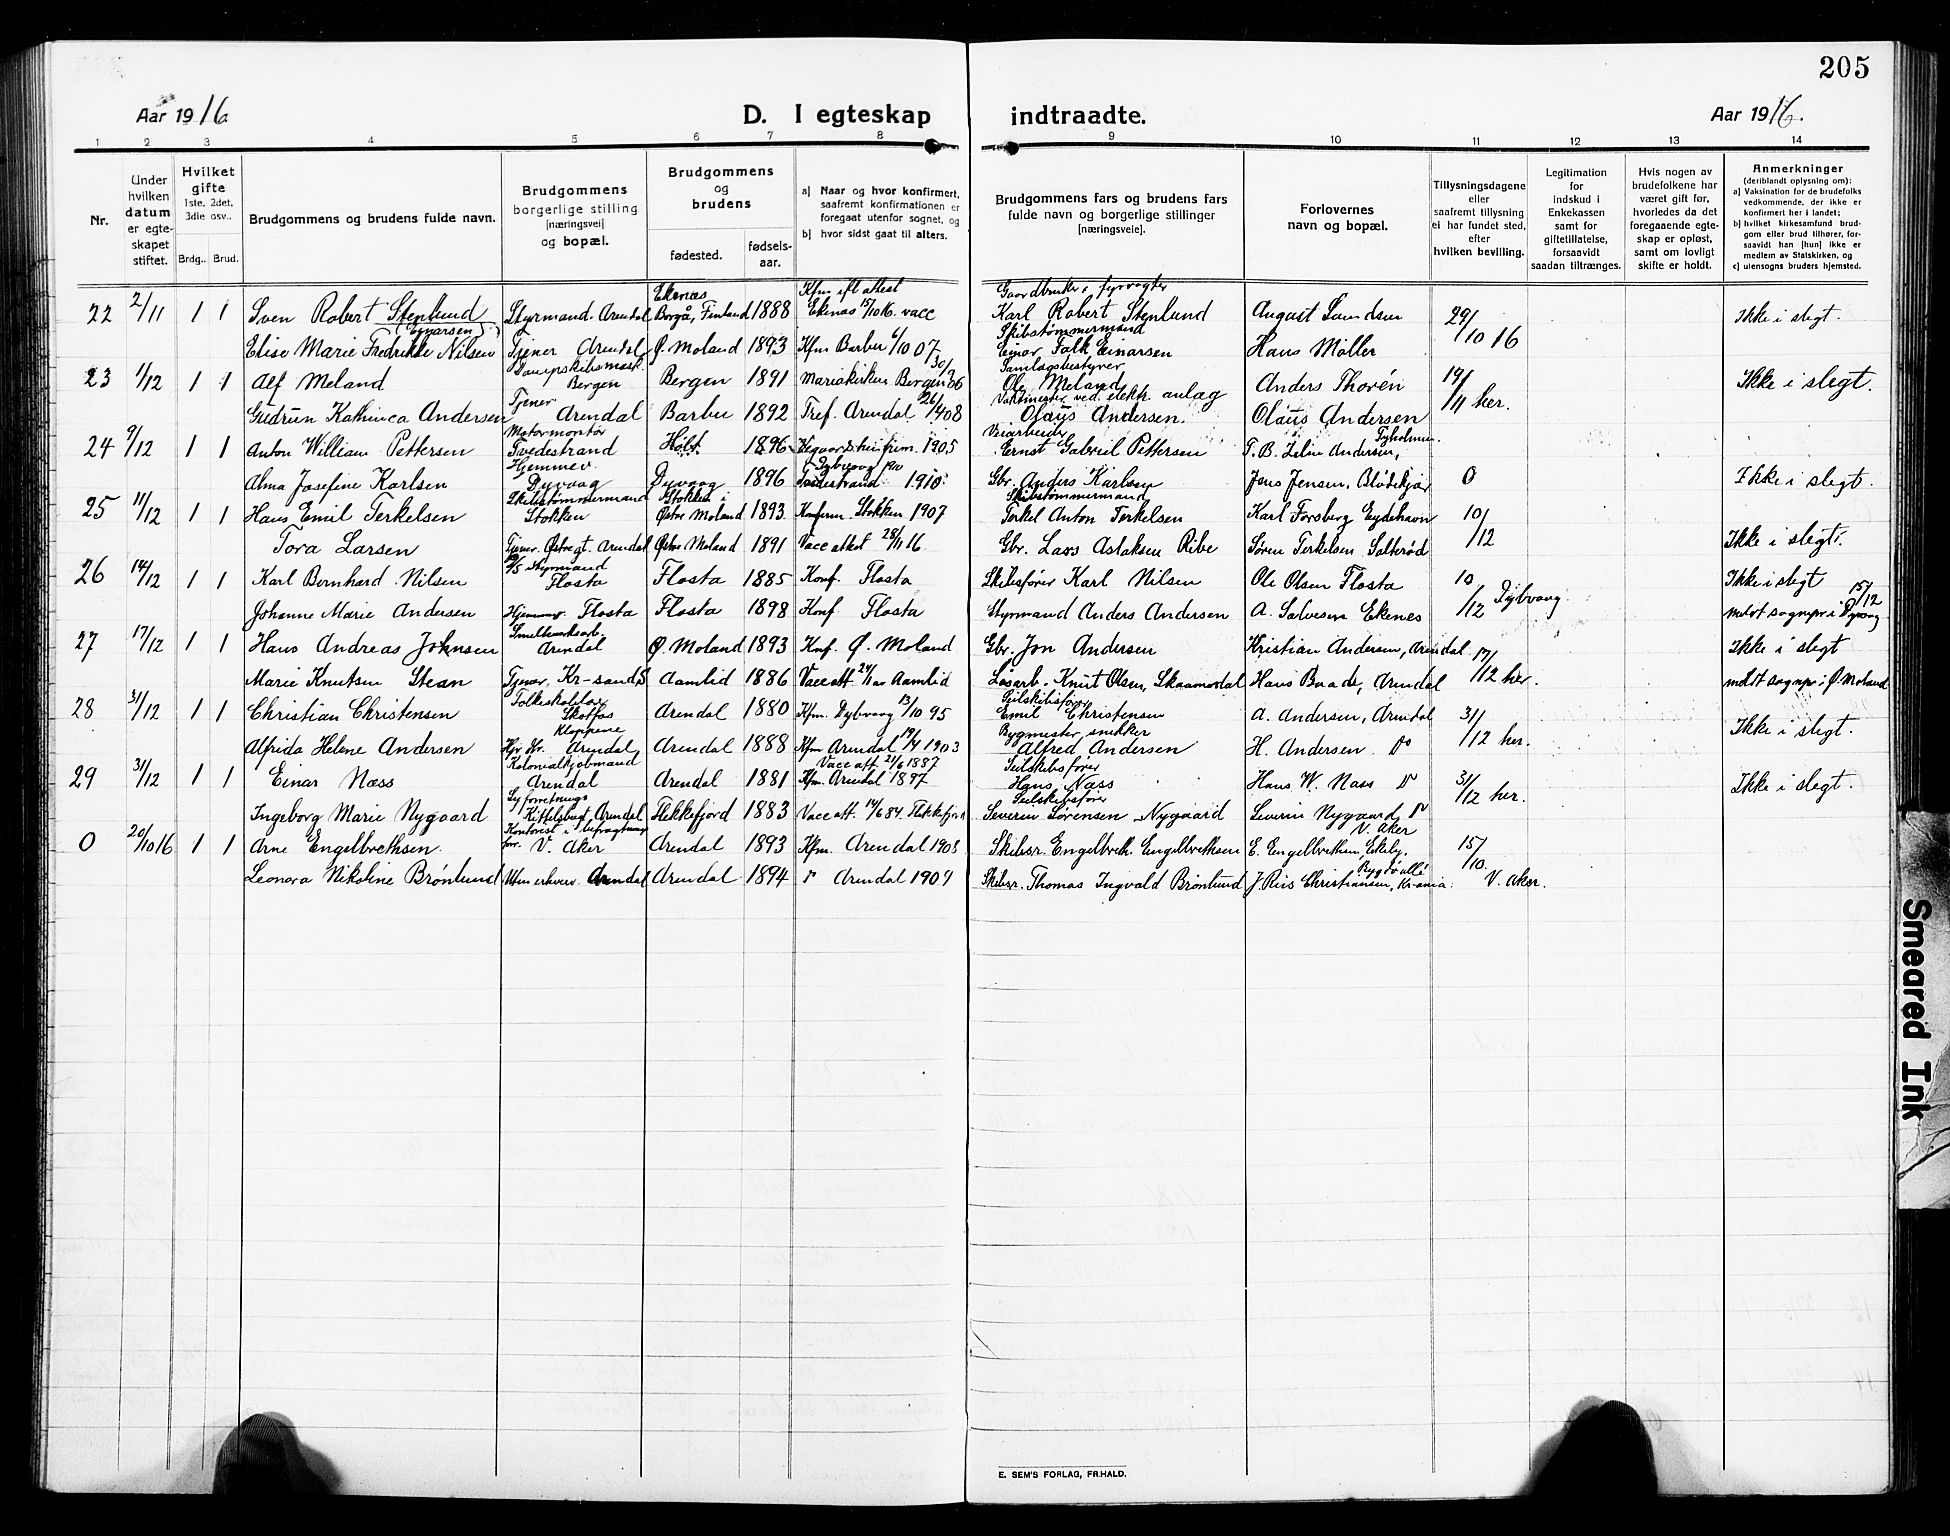 205
Aar 1916
D. I egteskap indtraadte.
Aar 1916.
1 2 3 4 5 6 7 8 9 10 11 12 13 14
Nr.
Under hvilken datum er egteskapet stiftet.
Hvilket gifte 1ste, 2det, 3die osv..
Brdg.. Brud.
Brudgommens og brudens fulde navn.
Brudgommens borgerlige stilling [næringsvei] og bopæl.
Brudgommens og brudens
fødested.
fødsels-aar.
a] Naar og hvor konfirmert, saafremt konfirmationen er foregaat utenfor sognet, og
b] hvor sidst gaat til alters.
Brudgommens fars og brudens fars fulde navn og borgerlige stillinger [næringsveie].
Forlovernes navn og bopæl.
Tillysningsdagene eller saafremt tillysning ei har fundet sted, efter hvilken bevilling.
Legitimation for indskud i Enkekassen samt for giftetillatelse, forsaavidt saadan tiltrænges.
Hvis nogen av brudefolkene har været gift før, hvorledes da det foregaaende egteskap er opløst, samt om lovligt skifte er holdt.
Anmerkninger (deriblandt oplysning om):
a] Vaksination for de brudefolks vedkommende, der ikke er konfirmert her i landet;
b] hvilket kirkesamfund brudgom eller brud tilhører, forsaavidt han [hun] ikke er medlem av Statskirken, og
c] utensogns bruders hjemsted.
22 2/11 1 1 Sven Robert Stenlund Styrmand. Arendal Ekenæs Borgå, Finland 1888 Kfm efl attest Ekenas 15/10 16. vacc Gaardbruker, fyrvogter Karl Robert Stenlund August 29/10 16 Ikke i slegt.
Elise Marie Fredrikke Nilsen (Eynarsen) Tjener Arendal Ø. Moland 1893 Kfm Barbu 6/10 07 Skibstømmermand Einar Falk Einarsen Hans Møller
23 1/12 1 1 Alf Meland Bergen Bergen 1891 Mariakirken Bergen Samlagsbestyrer Ole Meland Anders Thorén 19/11 her. Ikke i slegt.
Gudrun Kathinca Andersen Tjener Arendal Barbu 1892 Tref. Arendal 26/4 08 ved elektr. anlæg Olaus Andersen. Olaus Andersen
24 9/12 1 1 Anton William Pettersen Motormontør Tvedestrand Holt 1896 1905 Veiarbeider Ernst Gabriel Pettersen T. B. Zeline Andersen, Tyholmen.
Alma Josefine Karlsen Hjemmev Dyvaag Dyvaag 1896 Dybvaag 1910 Gbr. Anders Karlsen Jens Jensen, Blødekjær 0 Ikke i slegt.
25 11/12 1 1 Hans Emil Terkelsen Skibstømmermand Stokken Stokken i Østre Moland 1893 Konferm. Stokken 1907 Skibstømmermand Terkel Anton Terkelsen Karl Forsberg Eydehavn 10/12
Tora Larsen Tjener. Østregt. Arendal Østre Moland 1891 Vacc attest 28/11 16. Gbr. Lars Aslaksen Ribe Søren Terkelsen Salterød Ikke i slegt.
26 14/12 1 1 Karl Bernhard Nilsen D/S styrmand Flosta Flosta 1885 Konf. Flosta Skibsfører Karl Nilsen Ole Olsen Flosta 10/12 Dybvaag Ikke i slegt
Johanne Marie Andersen Hjemmev Flosta Flosta 1898 Konf. Flosta Styrmand Anders Andersen A. Salvesen Ekenes meldt sognepr i Dyvaag 15/12
27 17/12 1 1 Hans Andreas Johnsen Smelteverksarb. Arendal Ø. Moland 1893 Knf. Ø. Moland Gbr. Jon Andersen Kristian Andersen, Arendal 17/12 her. Ikke i slegt
Marie Knutsen Stean Tjener, Kr-sand S Aamlid 1886 Vacc att. Aamlid Løsarb. Knut Olsen, Skaamedal Hans Baade, Arendal meldt sognepr i Ø Moland
28 31/12 1 1 Christian Christensen Folkeskolelærer Skotfos Arendal 1880 Kfm. Dybvaag 13/10 95 Seilskibsfører Emil Christensen A. Andersen, Arendal 31/12 her. Ikke i slegt.
Alfrida Helene Andersen Kloppene Arendal, Arendal 1888 Kfm Arendal 19/4 1903 Bygmester, snekker Alfred Andersen H. Andersen Do
29 31/12 1 1 Einar Næss Kolonialkjøbmand Arendal Arendal 1881 Vacc att. 21/6 1887 Kfm. Arendal 1897 Seilskibsfører Hans Næss Hans W. Næss Do 31/12 her. Ikke i slegt.
Ingeborg Marie Nygaard Syforretnings Kittelsbugt Arendal Flekkefjord 1883 Vacc att. 14/6 84. Flekkefjord Seilskibsfører Severin Sørensen Nygaard Severin Nygaard Do
0 20/10 16 1 1 Arne Engelbrethsen. Kontorist i befragtning V. Aker Arendal 1893 Kfm. Arendal 1908 Skibsr. Engelbreth. Engelbrethsen E. Engelbrethsen, V. Aker 15/10. V. Aker.
Leonora Nikoline Brønlund Uten erhverv. Arendal Arendal 1894 " Arendal 1909 Skibsr. Thomas Ingvald Brønlund J. Riis Christiansen, Bygdø allé Kr-ania.
E. SEM'S FORLAG, FR.HALD.
Smeared Ink